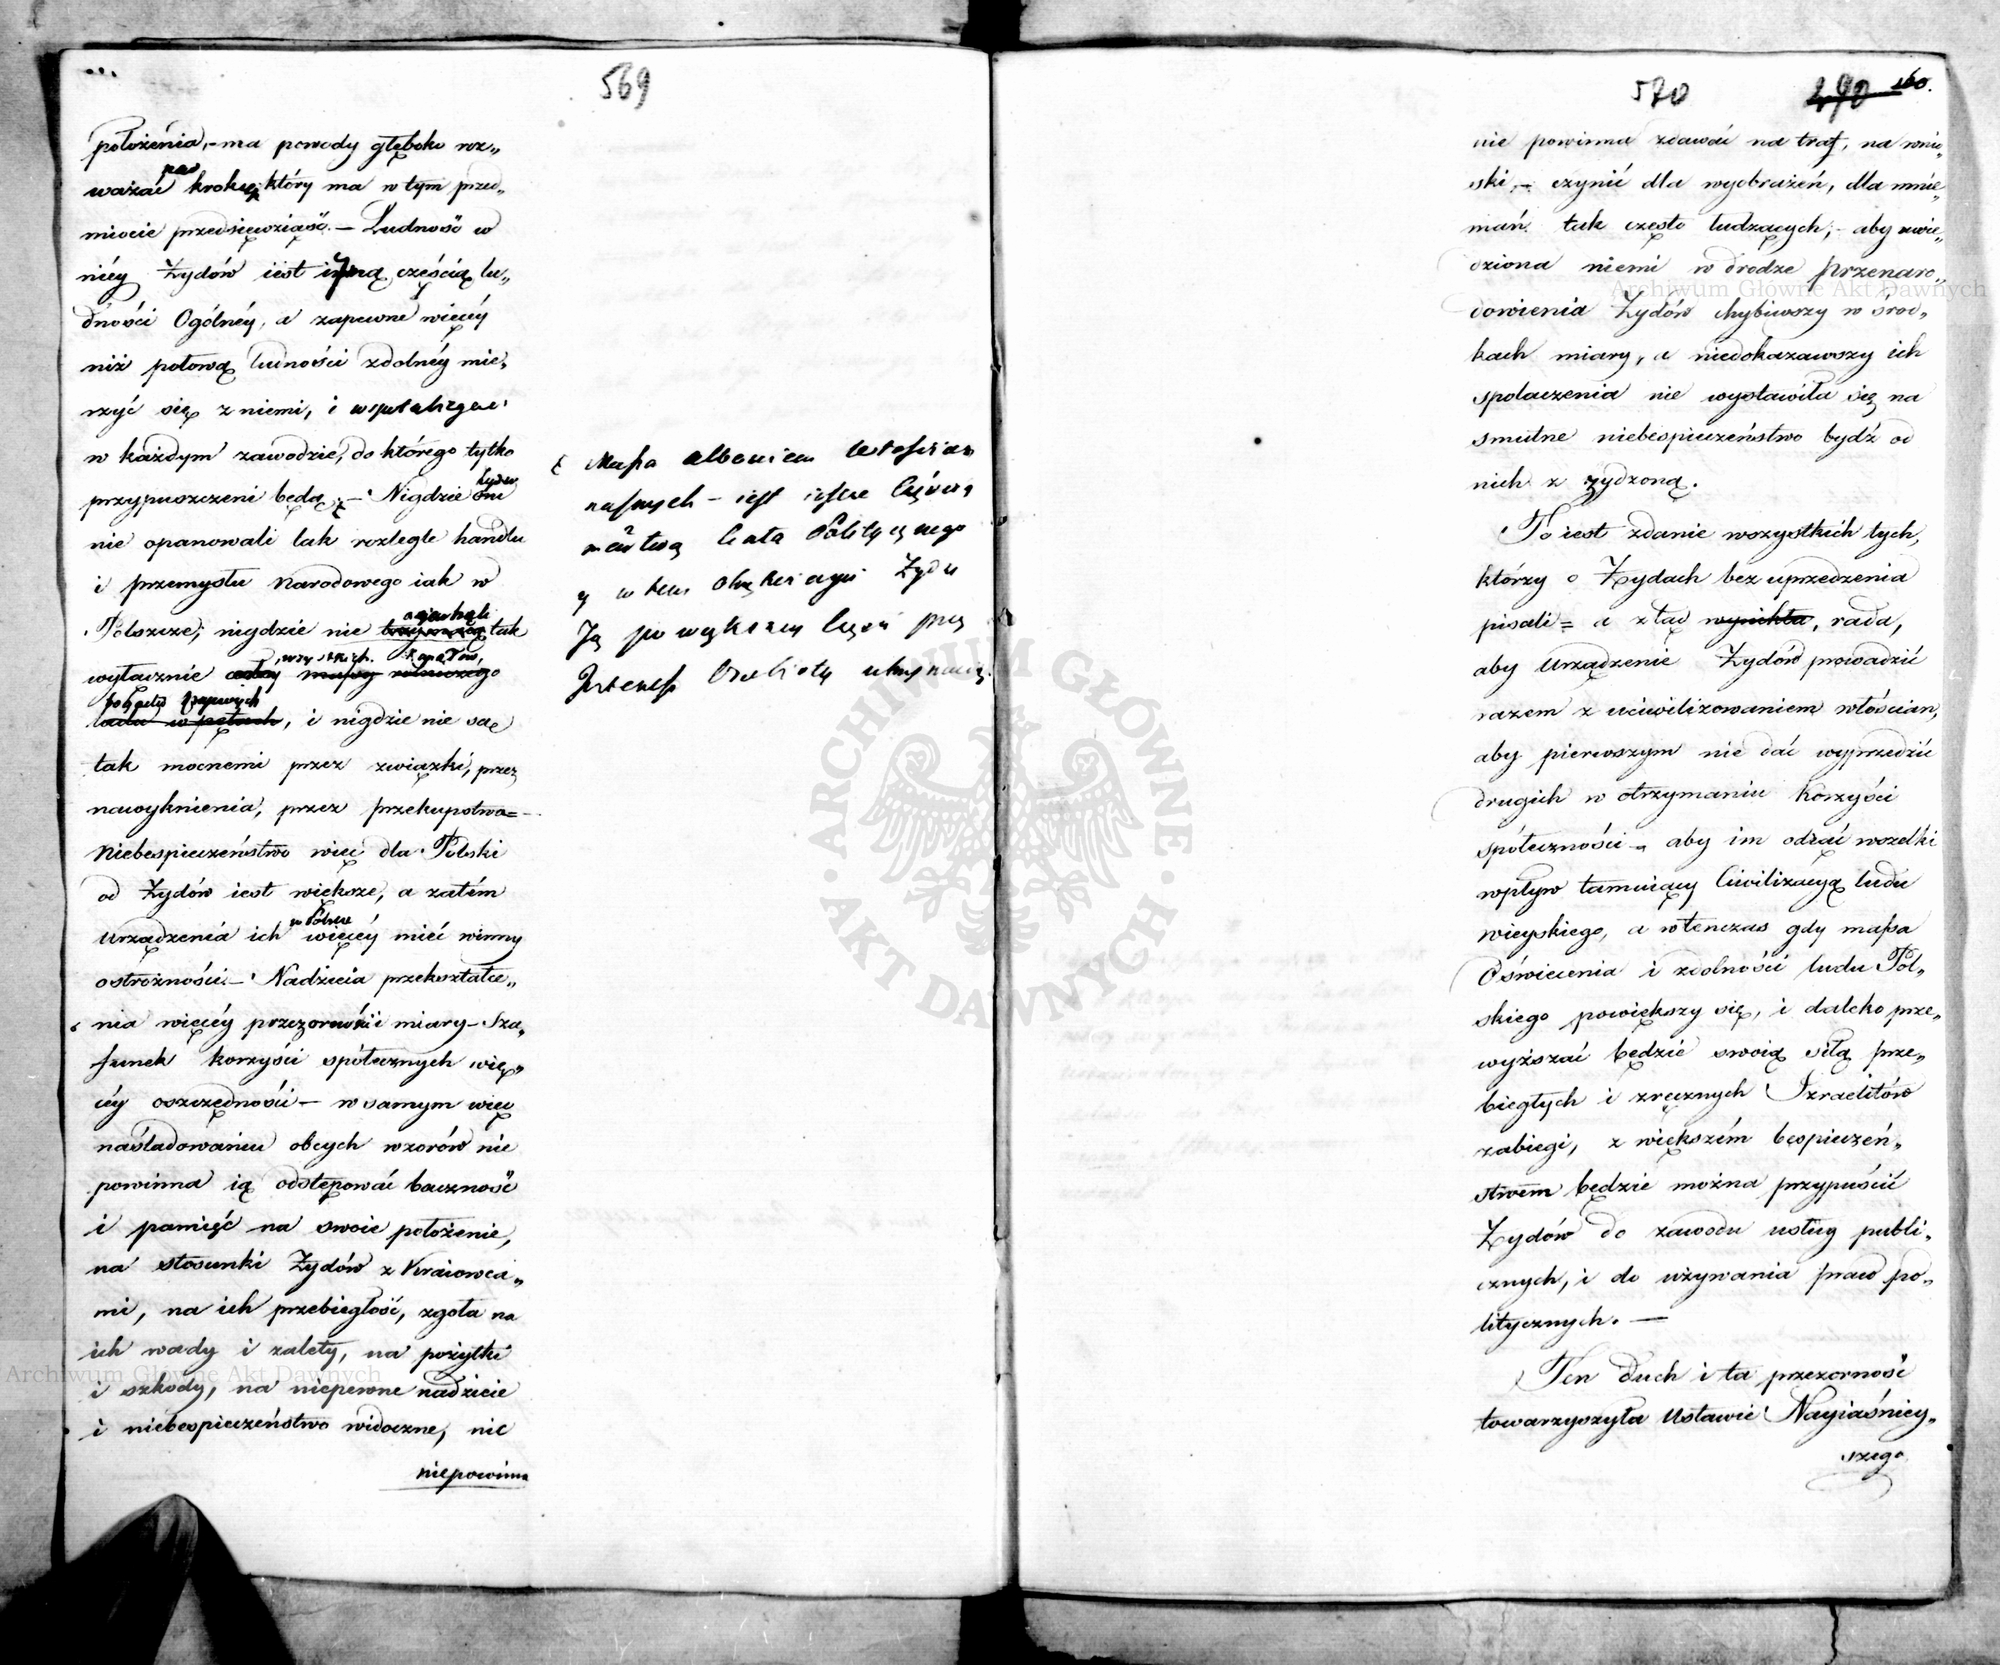 569
położenia, – ma powody głęboko roz„
ważać kroki, który ma w tym przed„
miocie przedsięwziąść. – Ludność w
niéy Żydów iest częścią lu„
dności Ogólnéy, a zapewne więcéy
niż połową ludności zdolnéy mie„
rzyć się z niemi, i
w każdym zawodzie, do którego tylko
przypuszczeni będą; – Nigdzie oni
nie opanowali tak rozlegle handlu
i przemysłu Narodowego iak w
Polszcze; nigdzie nie tak
wyłącznie wszystkich
i nigdzie nie są
tak mocnemi przez związki, przez
nawyknienia, przez przekupstwa =
Niebespieczeństwo więc dla Polski
od Żydów iest większe, a zatém
w Polsce
urządzenia ich więcéy mieć winny
ostrożności. – Nadzieia przekształce„
nia więcéy przezorności i miary – Sza„
funek korzyści spółecznych wię„
céy oszczędności – w samym więc
naśladowaniu obcych wzorów nie
powinna ią odstępować baczność
i pamięć na swoie położenie,
na stosunki Żydów z Kraiowca„
mi, na ich przebiegłość, zgoła na
ich wady i zalety, na pożytki
i szkody, na niepewne nadzieie
i niebespieczeństwo widoczne, nie
niepowinna
Massa albowiem włościan
naszych – iest ieszcze częścią
martwą Ciała Politycznego
Żydzi
Ją po większey części przez
Interess Osobisty utrzymuią.
570 290 160.
nie powinna zdawać na traf, na wnio„
ski, – czynić dla wyobrażeń, dla mnie„
mań tak często łudzących; – aby uwie„
dziona niemi w drodze przenaro„
dowienia Żydów chybiwszy w środ„
kach miary, a niedokazawszy ich
społaczenia nie wystawiła się na
smutne niebespieczeństwo bydź od
nich zżydzoną.
To iest zdanie wszystkich tych,
którzy o Żydach bez uprzedzenia
pisali = a ztąd wynikła, rada,
aby Urządzenie Żydów prowadzić
razem z ucywilizowaniem włościan,
aby pierwszym nie dać wyprzedzić
drugich w otrzymaniu korzyści
spółeczności – aby im odjąć wszelki
wpływ tamuiący Civilizacyą ludu
wieyskiego, a wtenczas gdy massa
Oświecenia i zdolności ludu Pol„
skiego powiększy się, i daleko prze„
wyższać będzie swoią siłą prze„
biegłych i zręcznych Izraelitów
zabiegi, z większém bespieczeń„
stwem będzie można przypuścić
Żydów do zawodu usług publi„
cznych, i do używania praw po„
litycznych. –
Ten duch i ta przezorność
towarzyszyła Ustawie Nayiaśniey„
szego